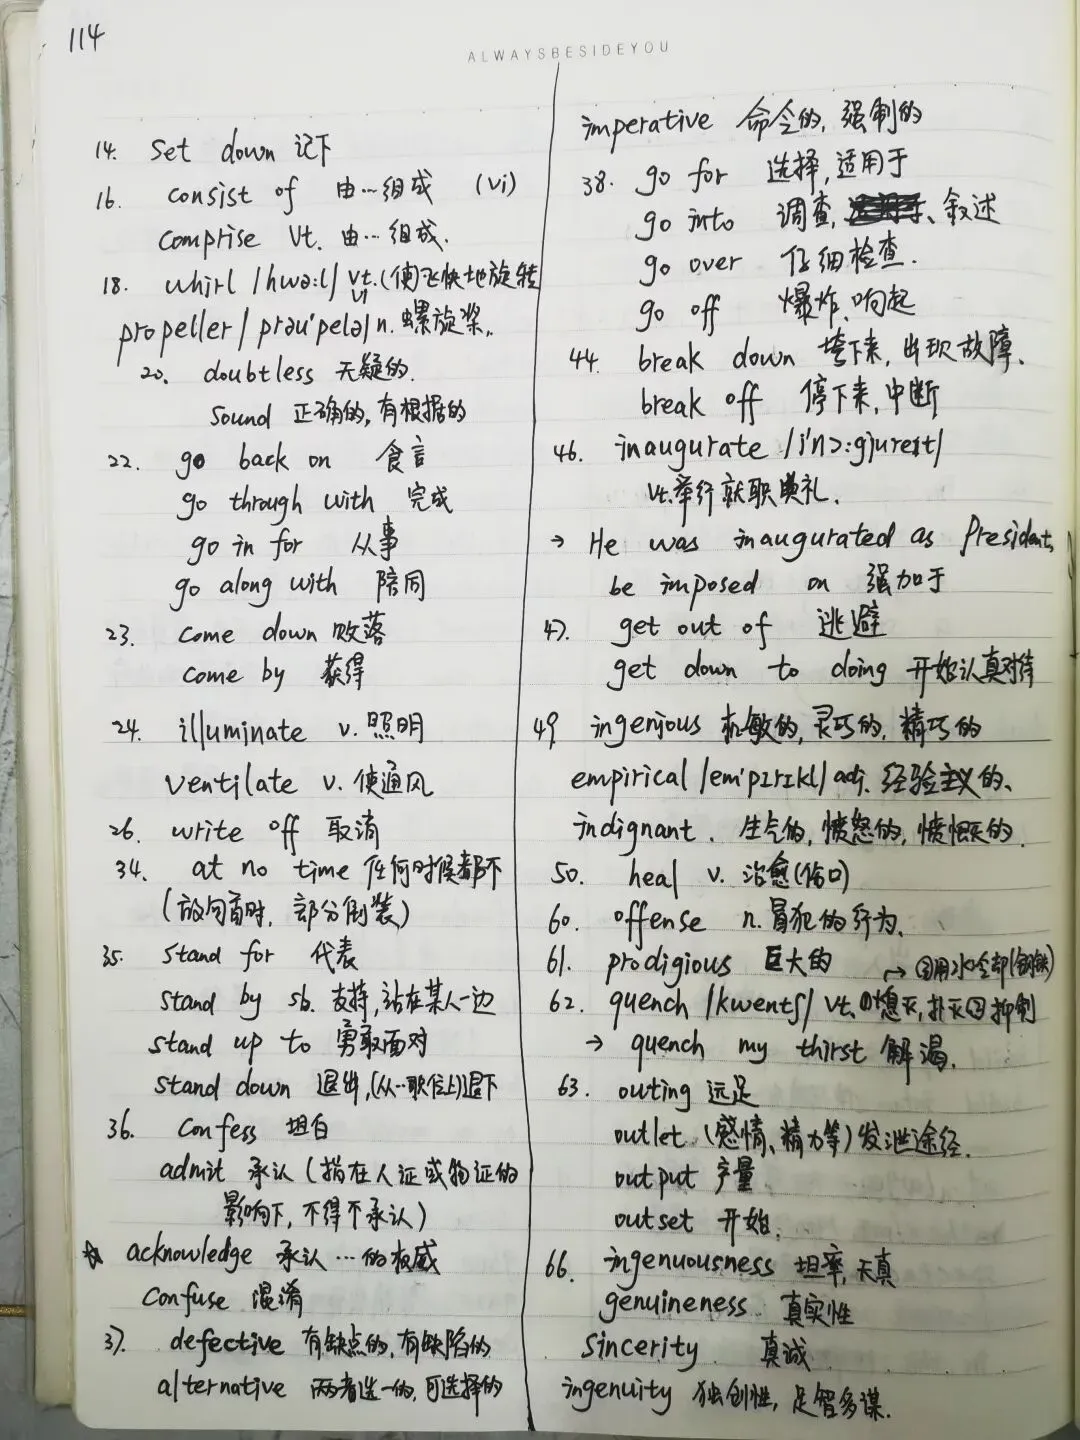 114
ALWAYSBESIDEYOU
14. Set down 记下
16. consist of 由…组成 (vi)
comprise Vt. 由…组成.
18. whirl /hwə:l/ vt.(使)飞快地旋转
vi
propeller /prəu'pelə/ n. 螺旋桨.
20. doubtless 无疑的.
sound 正确的,有根据的
22. go back on 食言
go through with 完成
go in for 从事
go along with 陪同
23. come down 败落
come by 获得
24. illuminate v. 照明
ventilate v. 使通风
26. write off 取消
34. at no time 任何时候都不
(放句首时, 部分倒装)
35. stand for 代表
stand by sb. 支持,站在某人一边
stand up to 勇敢面对
stand down 退出,(从…职位上)退下
36. confess 坦白
admit 承认 (指在人证或物证的
影响下,不得不承认)
☆ acknowledge 承认…的权威
confuse 混淆
37. defective 有缺点的,有缺陷的
alternative 两者选一的,可选择的
imperative 命令的,强制的
38. go for 选择,适用于
go into 调查, 、叙述
go over 仔细检查.
go off 爆炸,响起
44. break down 垮下来,出现故障.
break off 停下来,中断
46. inaugurate /i'nɔ:gjureɪt/
vt.举行就职典礼.
→ He was inaugurated as President.
be imposed on 强加于
47. get out of 逃避
get down to doing 开始认真对待
49 ingenious 机敏的,灵巧的,精巧的
empirical /em'pɪrɪkl/ adj. 经验主义的.
indignant. 生气的,愤怒的,愤慨的.
50. heal v. 治愈(伤口)
60. offense n.冒犯的行为.
61. prodigious 巨大的
→ ③用水冷却(钢铁)
62. quench /kwentʃ/ vt.①熄灭,扑灭②抑制
→ quench my thirst 解渴.
63. outing 远足
outlet (感情、精力等)发泄途径.
output 产量
outset 开始.
66. ingenuousness 坦率,天真
genuineness 真实性
sincerity 真诚
ingenuity 独创性,足智多谋.